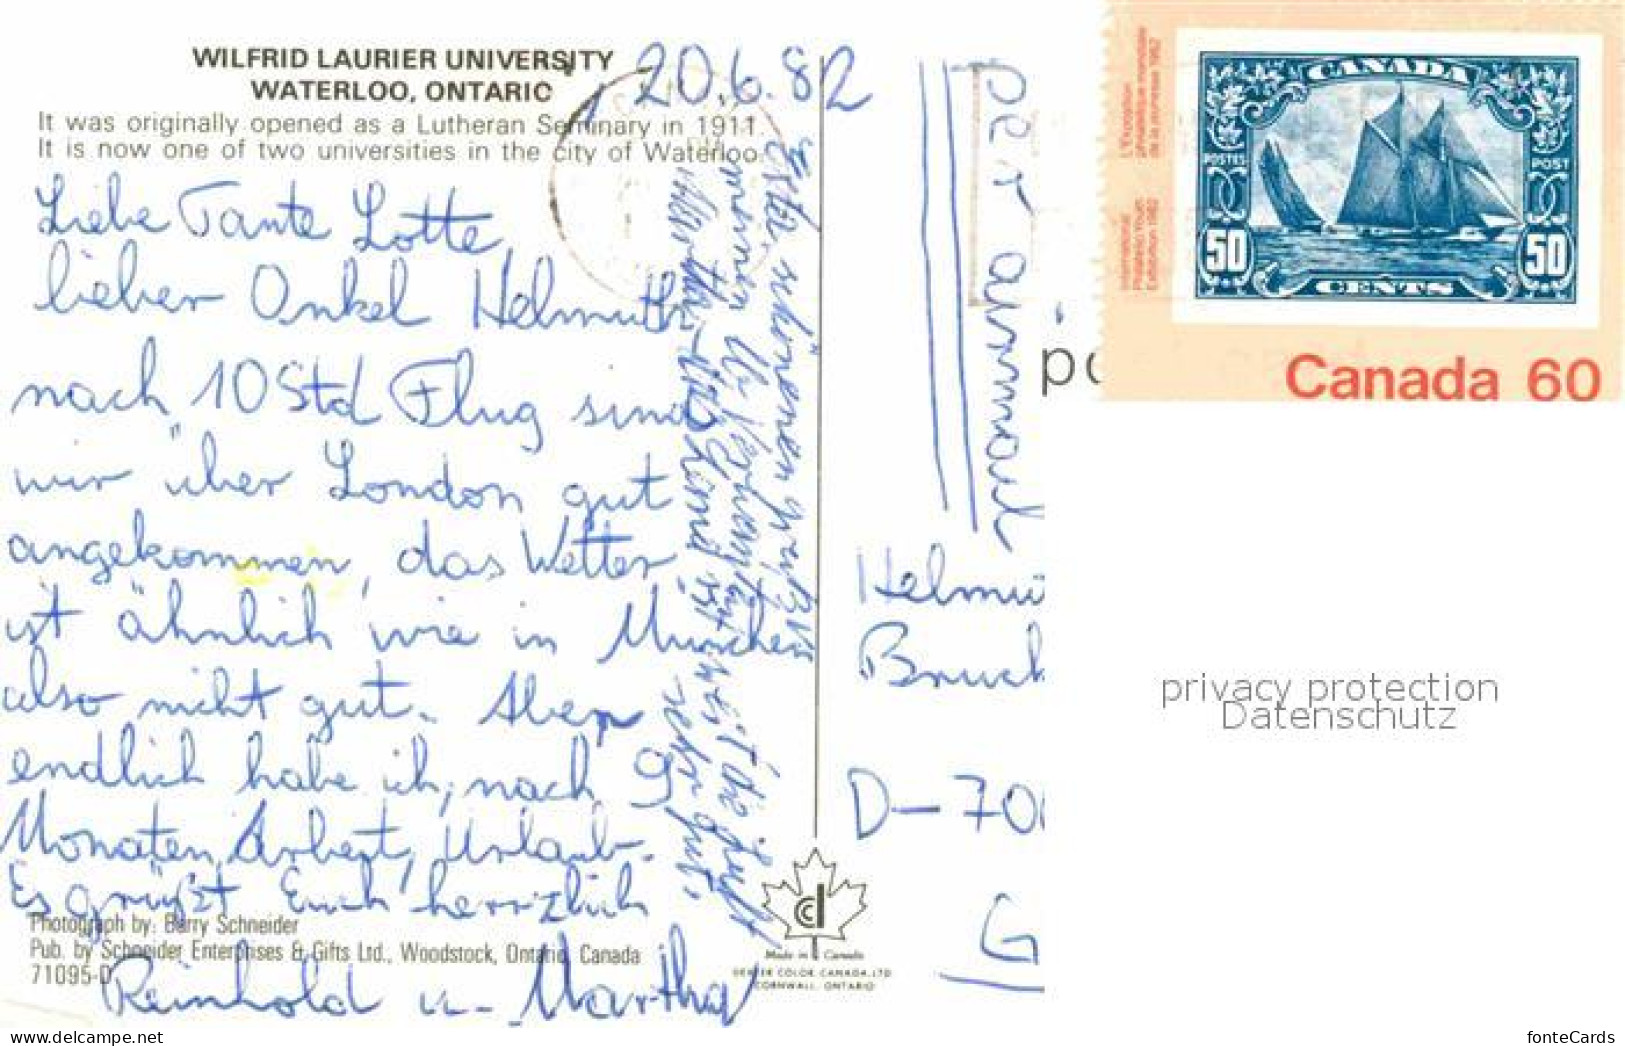 WILFRID LAURIER UNIVERSITY
WATERLOO, ONTARIO
It was originally opened as a Lutheran Seminary in 1911.
It is now one of two universities in the city of Waterloo.
20.6.82
Liebe Tante Lotte,
lieber Onkel Helmuth
nach 10 Std Flug sind
wir über London gut
angekommen, das Wetter
ist ähnlich wie in München
also nicht gut. Aber
endlich habe ich, nach 9
Monaten Arbeit, Urlaub.
Es grüßt Euch herzlich
Reinhold u. Martha
schönen
ist die Luft
sehr gut.
Photograph by: Barry Schneider
Pub. by Schneider Enterprises & Gifts Ltd., Woodstock, Ontario, Canada
71095-D
Made in Canada
DEXTER COLOR CANADA, LTD
CORNWALL, ONTARIO
per airmail
po
Helmu
Bruck
D-700
G
L'Exposition
philatélique mondiale
de la jeunesse 1982
International
Philatelic Youth
Exhibition 1982
CANADA
POSTES
POST
50
50
CENTS
Canada 60
privacy protection
Datenschutz
fonteCards